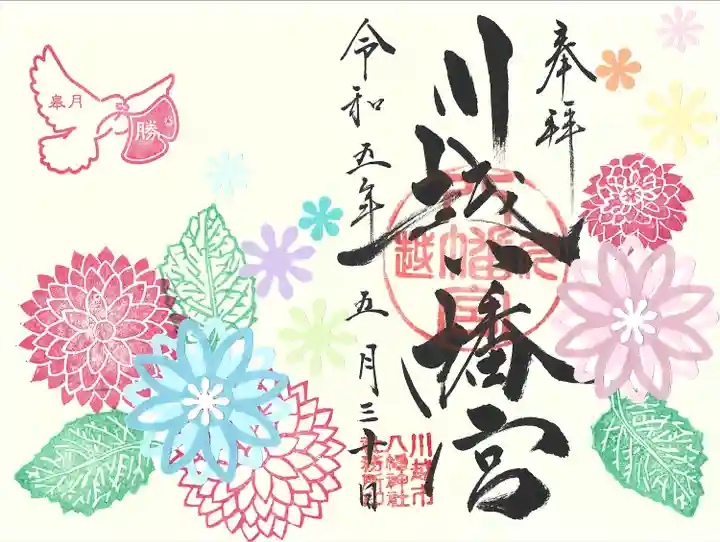 奉拝
川越八幡宮
令和五年 五月三十日
皐月
勝
川越市
八幡神社
社務所印